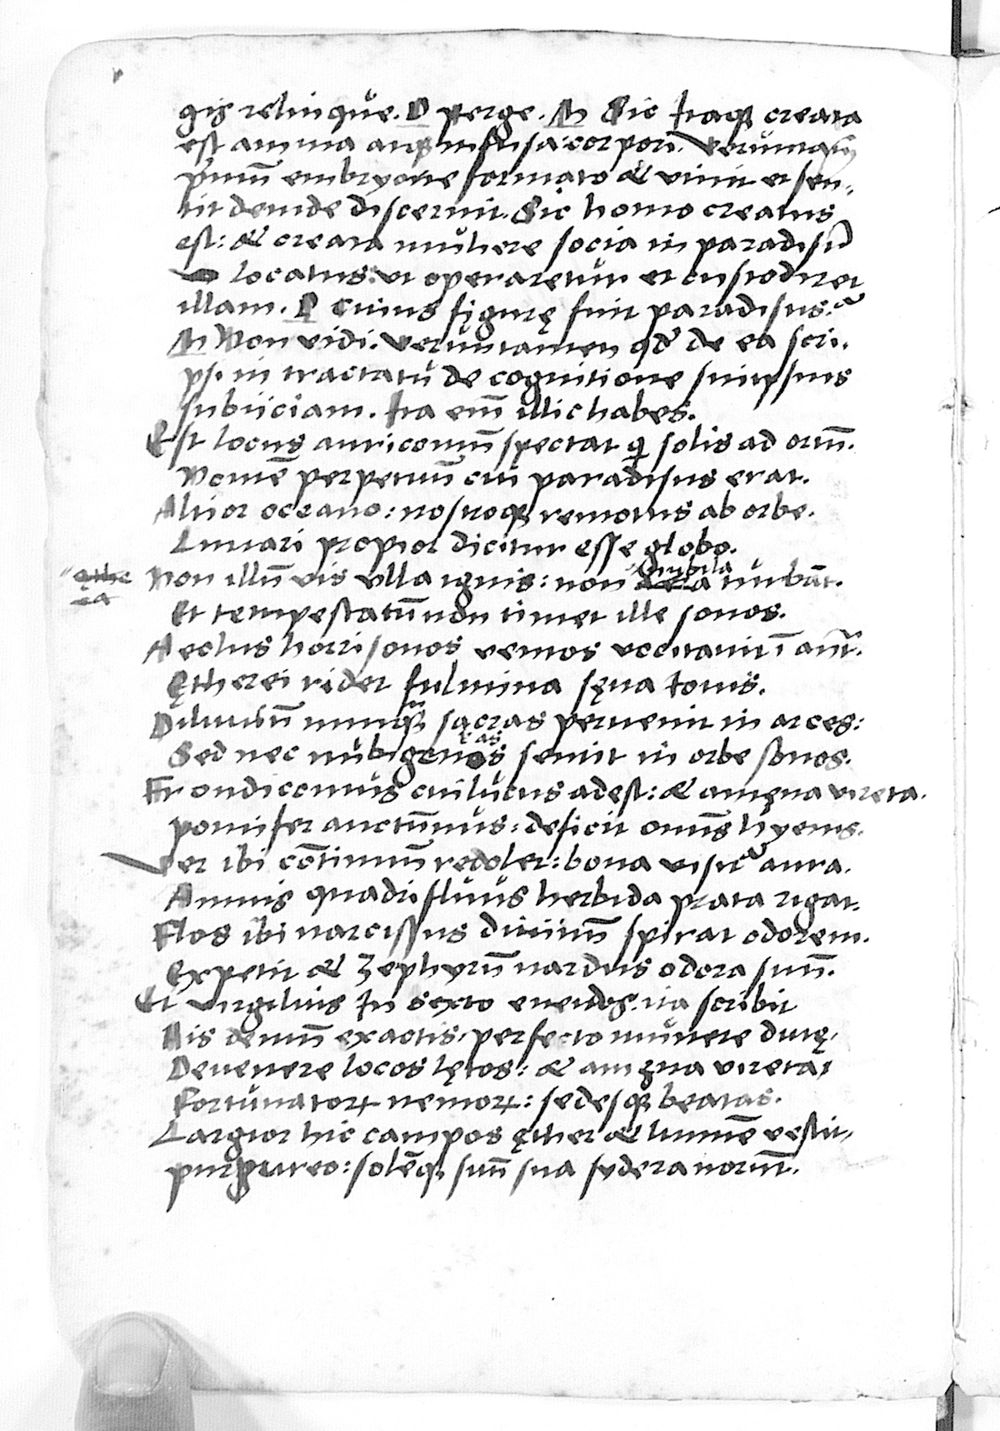 gis relinque. D perge. M Sic itaqȝ creata
est anima atqȝ infusa corpori. Verumtamē
primū embryone formato & viuit et sen-
tit deinde discernit. Sic homo creatus
est: & creata muliere socia in paradisū
locatus: vt operaretur et custodiret
illam. D Cuius figurę fuit paradisus?
M Non vidi. Veruntamen qđ de ea scri-
psi in tractatu de cognitione suiipsius
subiiciam. Ita em̄ illic habes.
Est locus auricomū spectat qi solis ad ortū.
Nomē perpetuū cui paradisus erat.
Altior oceano: nostroqȝ remotus ab orbe.
Lunari propior dicitur esse globo.
Non illū vis vlla ignis: non nubila turbāt.
Et tempestatū non timet ille sonos.
Aeolus horrisonos ventos vocitauit ī antr̄.
Ętherei ridet fulmina sęua Iouis.
Diluuiū nunqȝ sacras peruenit in arces:
Sed nec nubigenas sentit in orbe sonos.
Frondicomus cui lucus adest: & amęna vireta.
pomifer auctūnus: deficit omīs hyems.
Ver ibi cōtinuū redolet: bona visitat aura.
Amnis quadrifluus herbida prata rigat.
Flos ibi narcissus diuinū spirat odorem.
Expetit & Zephyrū nardus odora suū.
Et Virgilius In sexto eneidos ita scribit
His demū exactis, perfecto munere diuę,
Deuenere locos lętos: & amęna vireta
Fortunatoꝝ nemoꝝ: sedesqȝ beatas.
Largior hic campos ęther & lumīe vestit,
purpureo: solēqȝ suū sua sydera norūt.